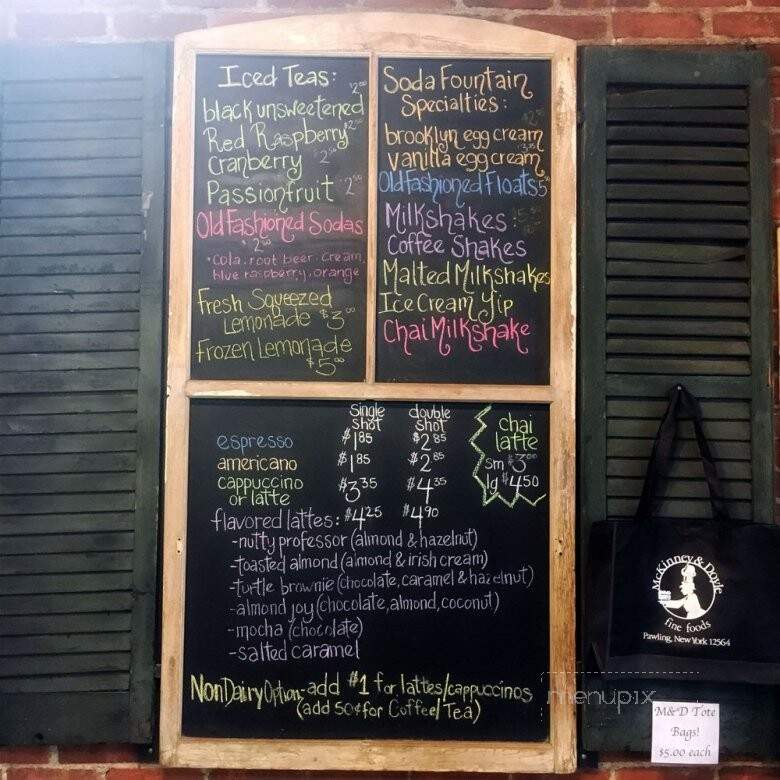 Iced Teas:
black unsweetened
Red Raspberry
Cranberry
Passionfruit
Old Fashioned Sodas
*Cola. root beer. cream,
blue raspberry, orange
Fresh Squeezed
Lemonade $3.00
Frozen Lemonade
$5.00
Soda Fountain
Specialties:
brooklyn egg cream
vanilla egg cream
Old Fashioned Floats 5
Milkshakes:
Coffee Shakes
Malted Milkshakes
Ice Cream Yip
Chai Milkshake
single shot double shot
espresso $1.85 $2.85
americano $1.85 $2.85
cappuccino
or latte $3.35 $4.35
flavored lattes: $4.25 $4.90
-nutty professor (almond & hazelnut)
-toasted almond (almond & irish cream)
-turtle brownie (chocolate, caramel & hazelnut)
-almond joy (chocolate, almond, coconut)
-mocha (chocolate)
-salted caramel
chai
latte
sm $3.00
lg $4.50
Non Dairy Option-add $1 for lattes/cappuccinos
(add 50¢ for Coffee/Tea)
McKinney & Doyle
fine foods
Pawling, New York 12564
menupix
M&D Tote
Bags!
$5.00 each